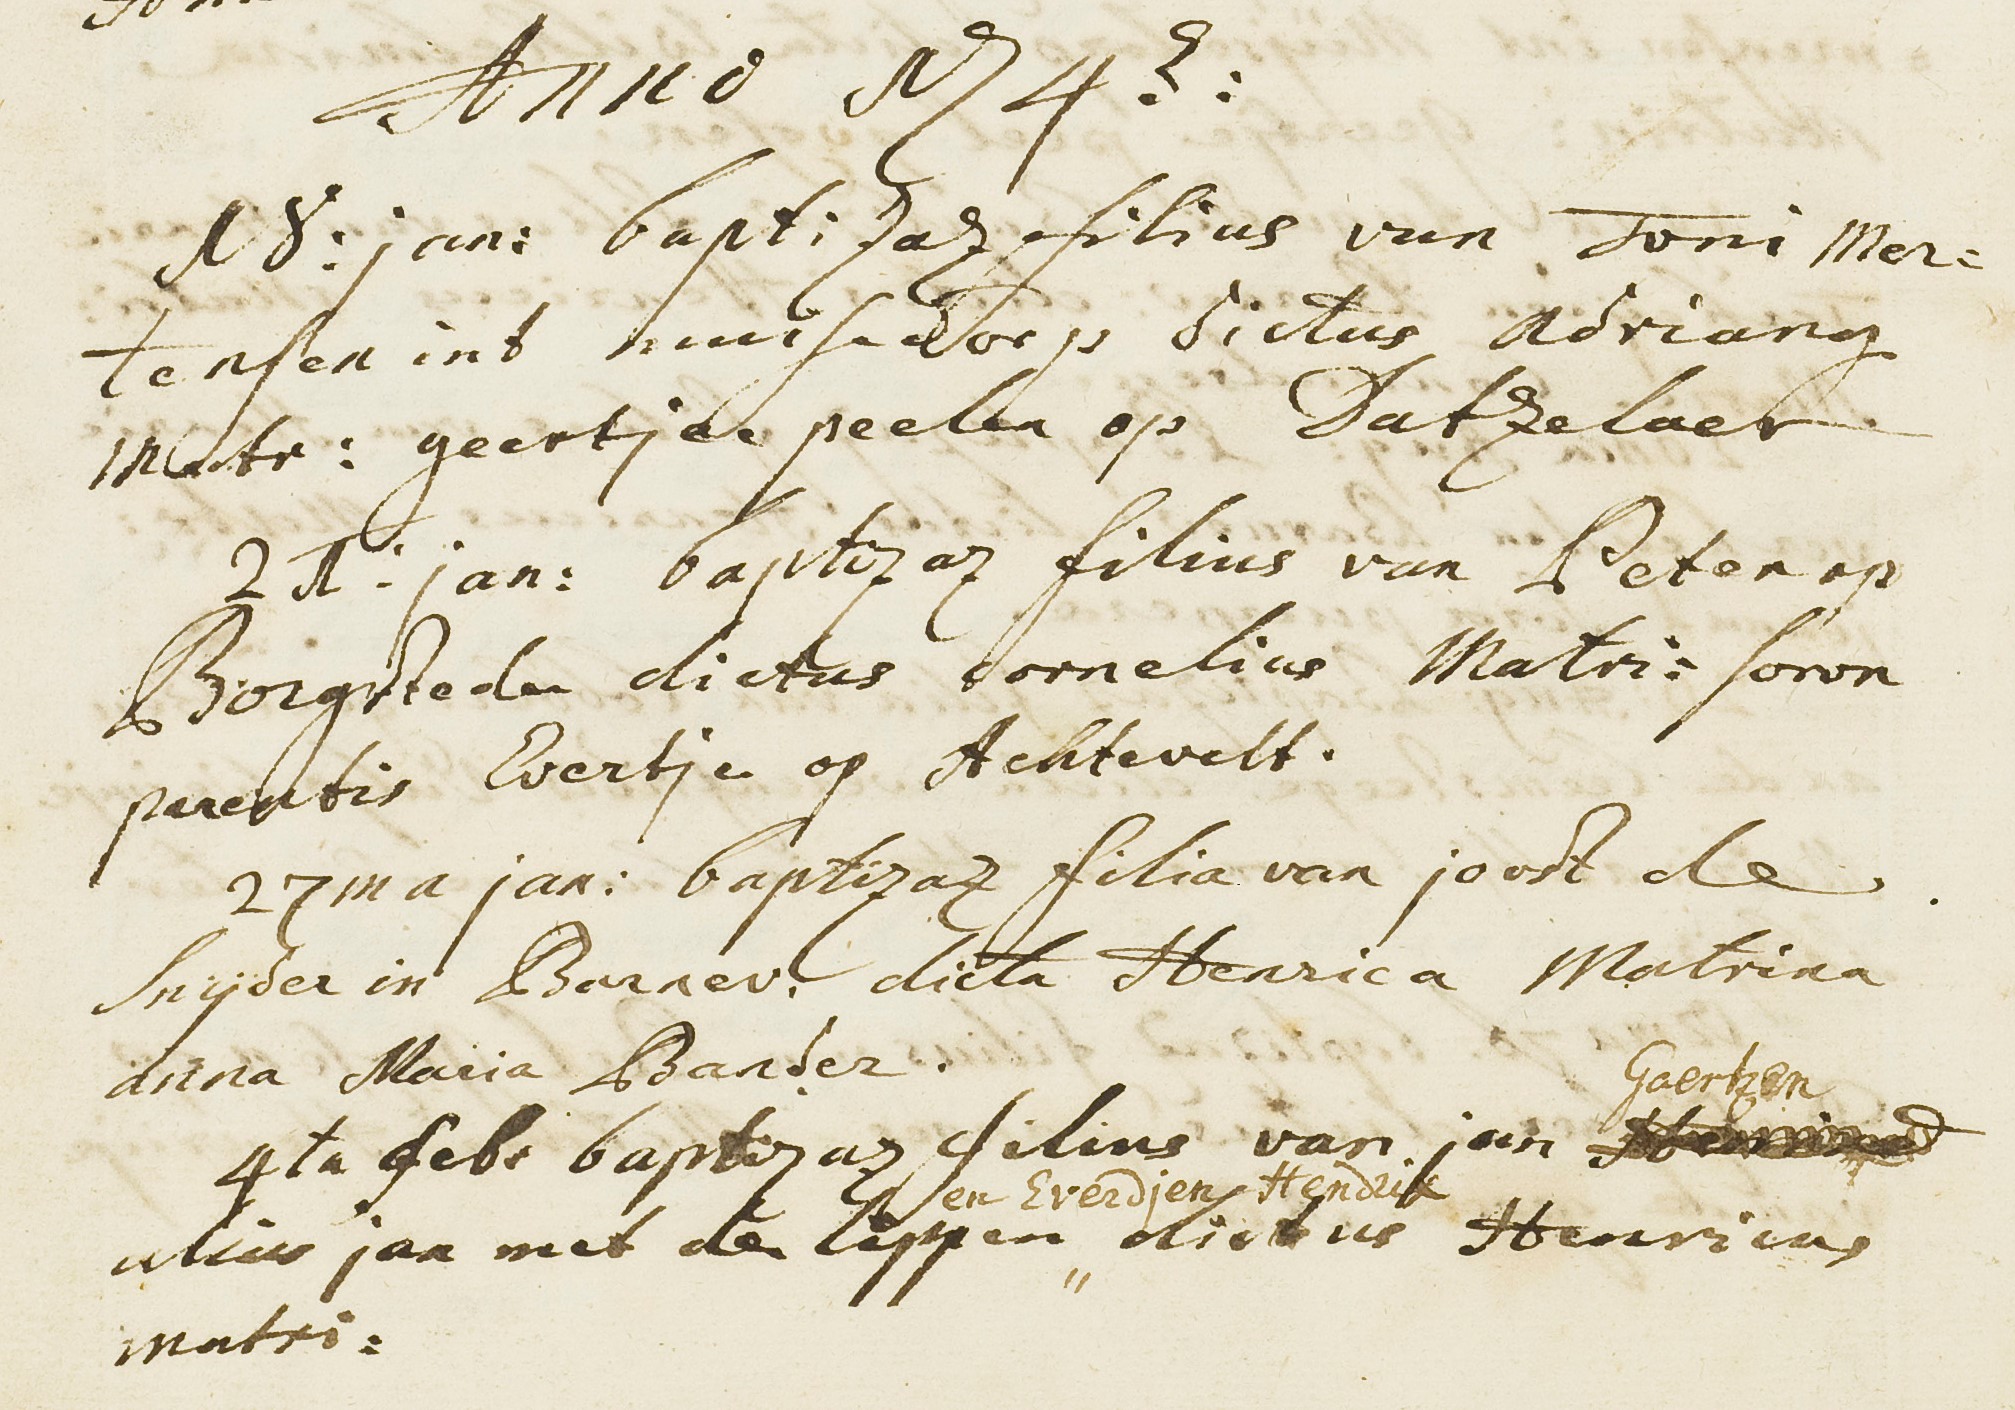 Anno 174?:
18: jan: baptizaz filius van Toni Mer=
tensen int nuisedorp dictus Adriang
Matr: geertjen peelen op Datzelaer
21: jan: baptizaz filius van Peter op
Borgstede dictus cornelius Matri: soror
parentis Evertje op Achtevelt.
27ma jan: baptizaz filia van joost de
Snyder in Barnev: dicta Henrica Matrina
anna Maria Bander.
Gaertzen
4ta feb: baptizaz filius van jan
en Everdjen Hendrik
alius jan met de leppen " dictus Henricus
matri: